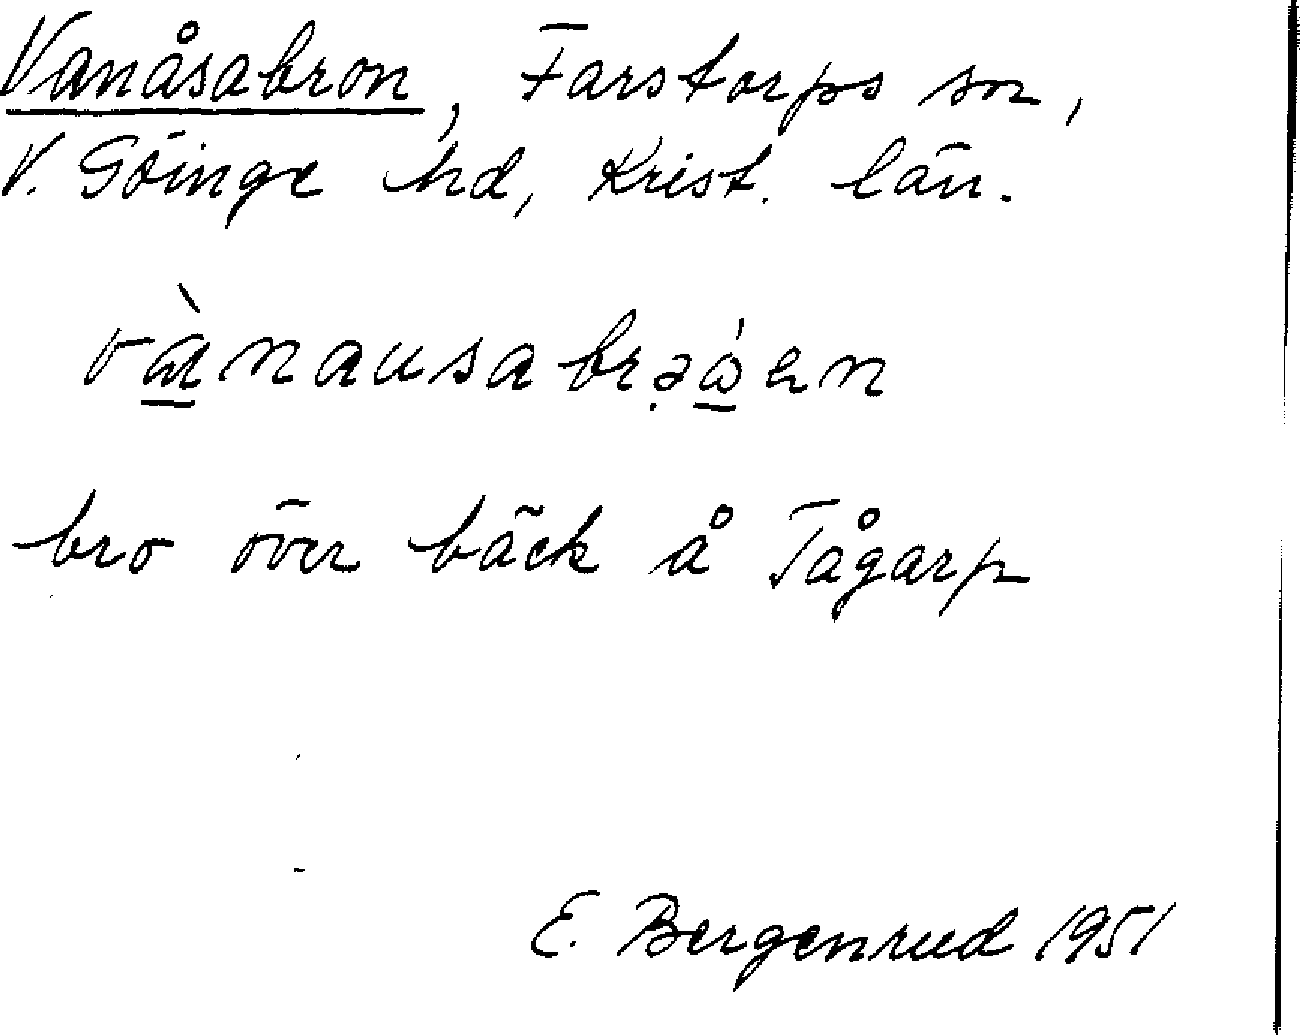 Vanåsabron, Farstorps sn,
V. Göinge hd, Krist. län.
bro över bäck å Tågarp
E. Bergenrud 1951